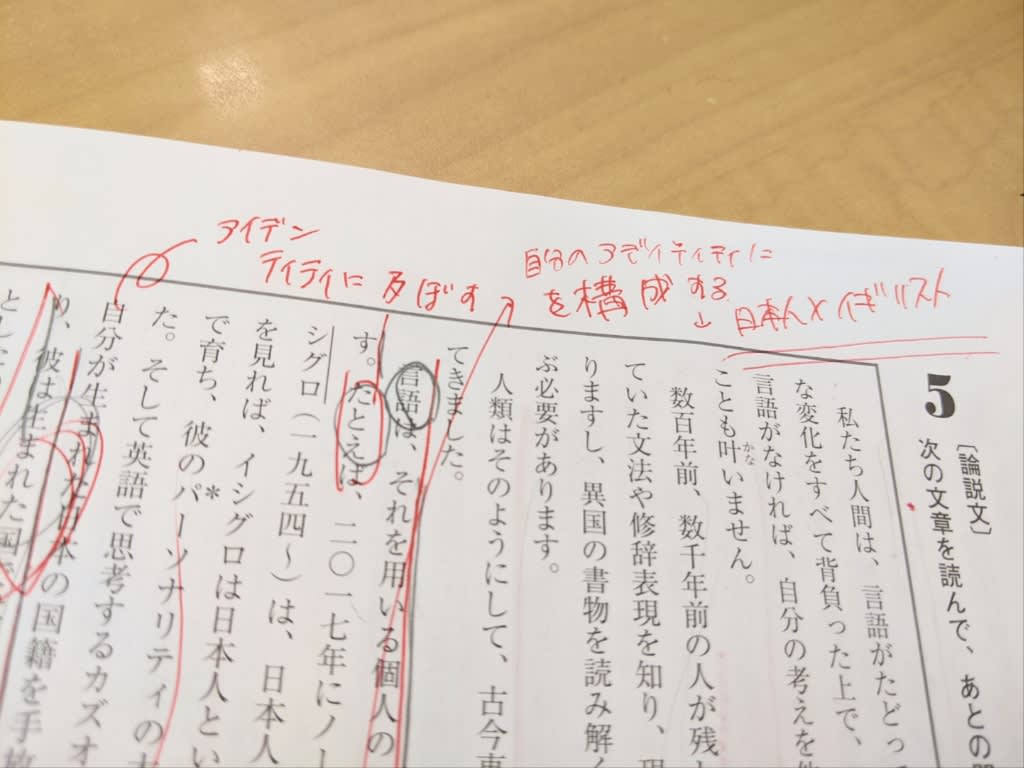 アイデン
ティティに及ぼす
自分のアデイティティに
を構成する
↓日本人とイギリスト
5
〔論説文〕
次の文章を読んで、あとの問
私たち人間は、言語がたどっ
な変化をすべて背負った上で、
言語がなければ、自分の考えを他
ことも叶いません。
かな
数百年前、数千年前の人が残
ていた文法や修辞表現を知り、現
りますし、異国の書物を読み解く
ぶ必要があります。
人類はそのようにして、古今東
てきました。
言語は、それを用いる個人の
す。たとえば、二〇一七年にノー
シグロ（一九五四〜）は、日本人
を見れば、イシグロは日本人とい
で育ち、彼の*パーソナリティの大
た。そして英語で思考するカズオ
自分が生まれた日本の国籍を手放
り、彼は生まれた国
とした